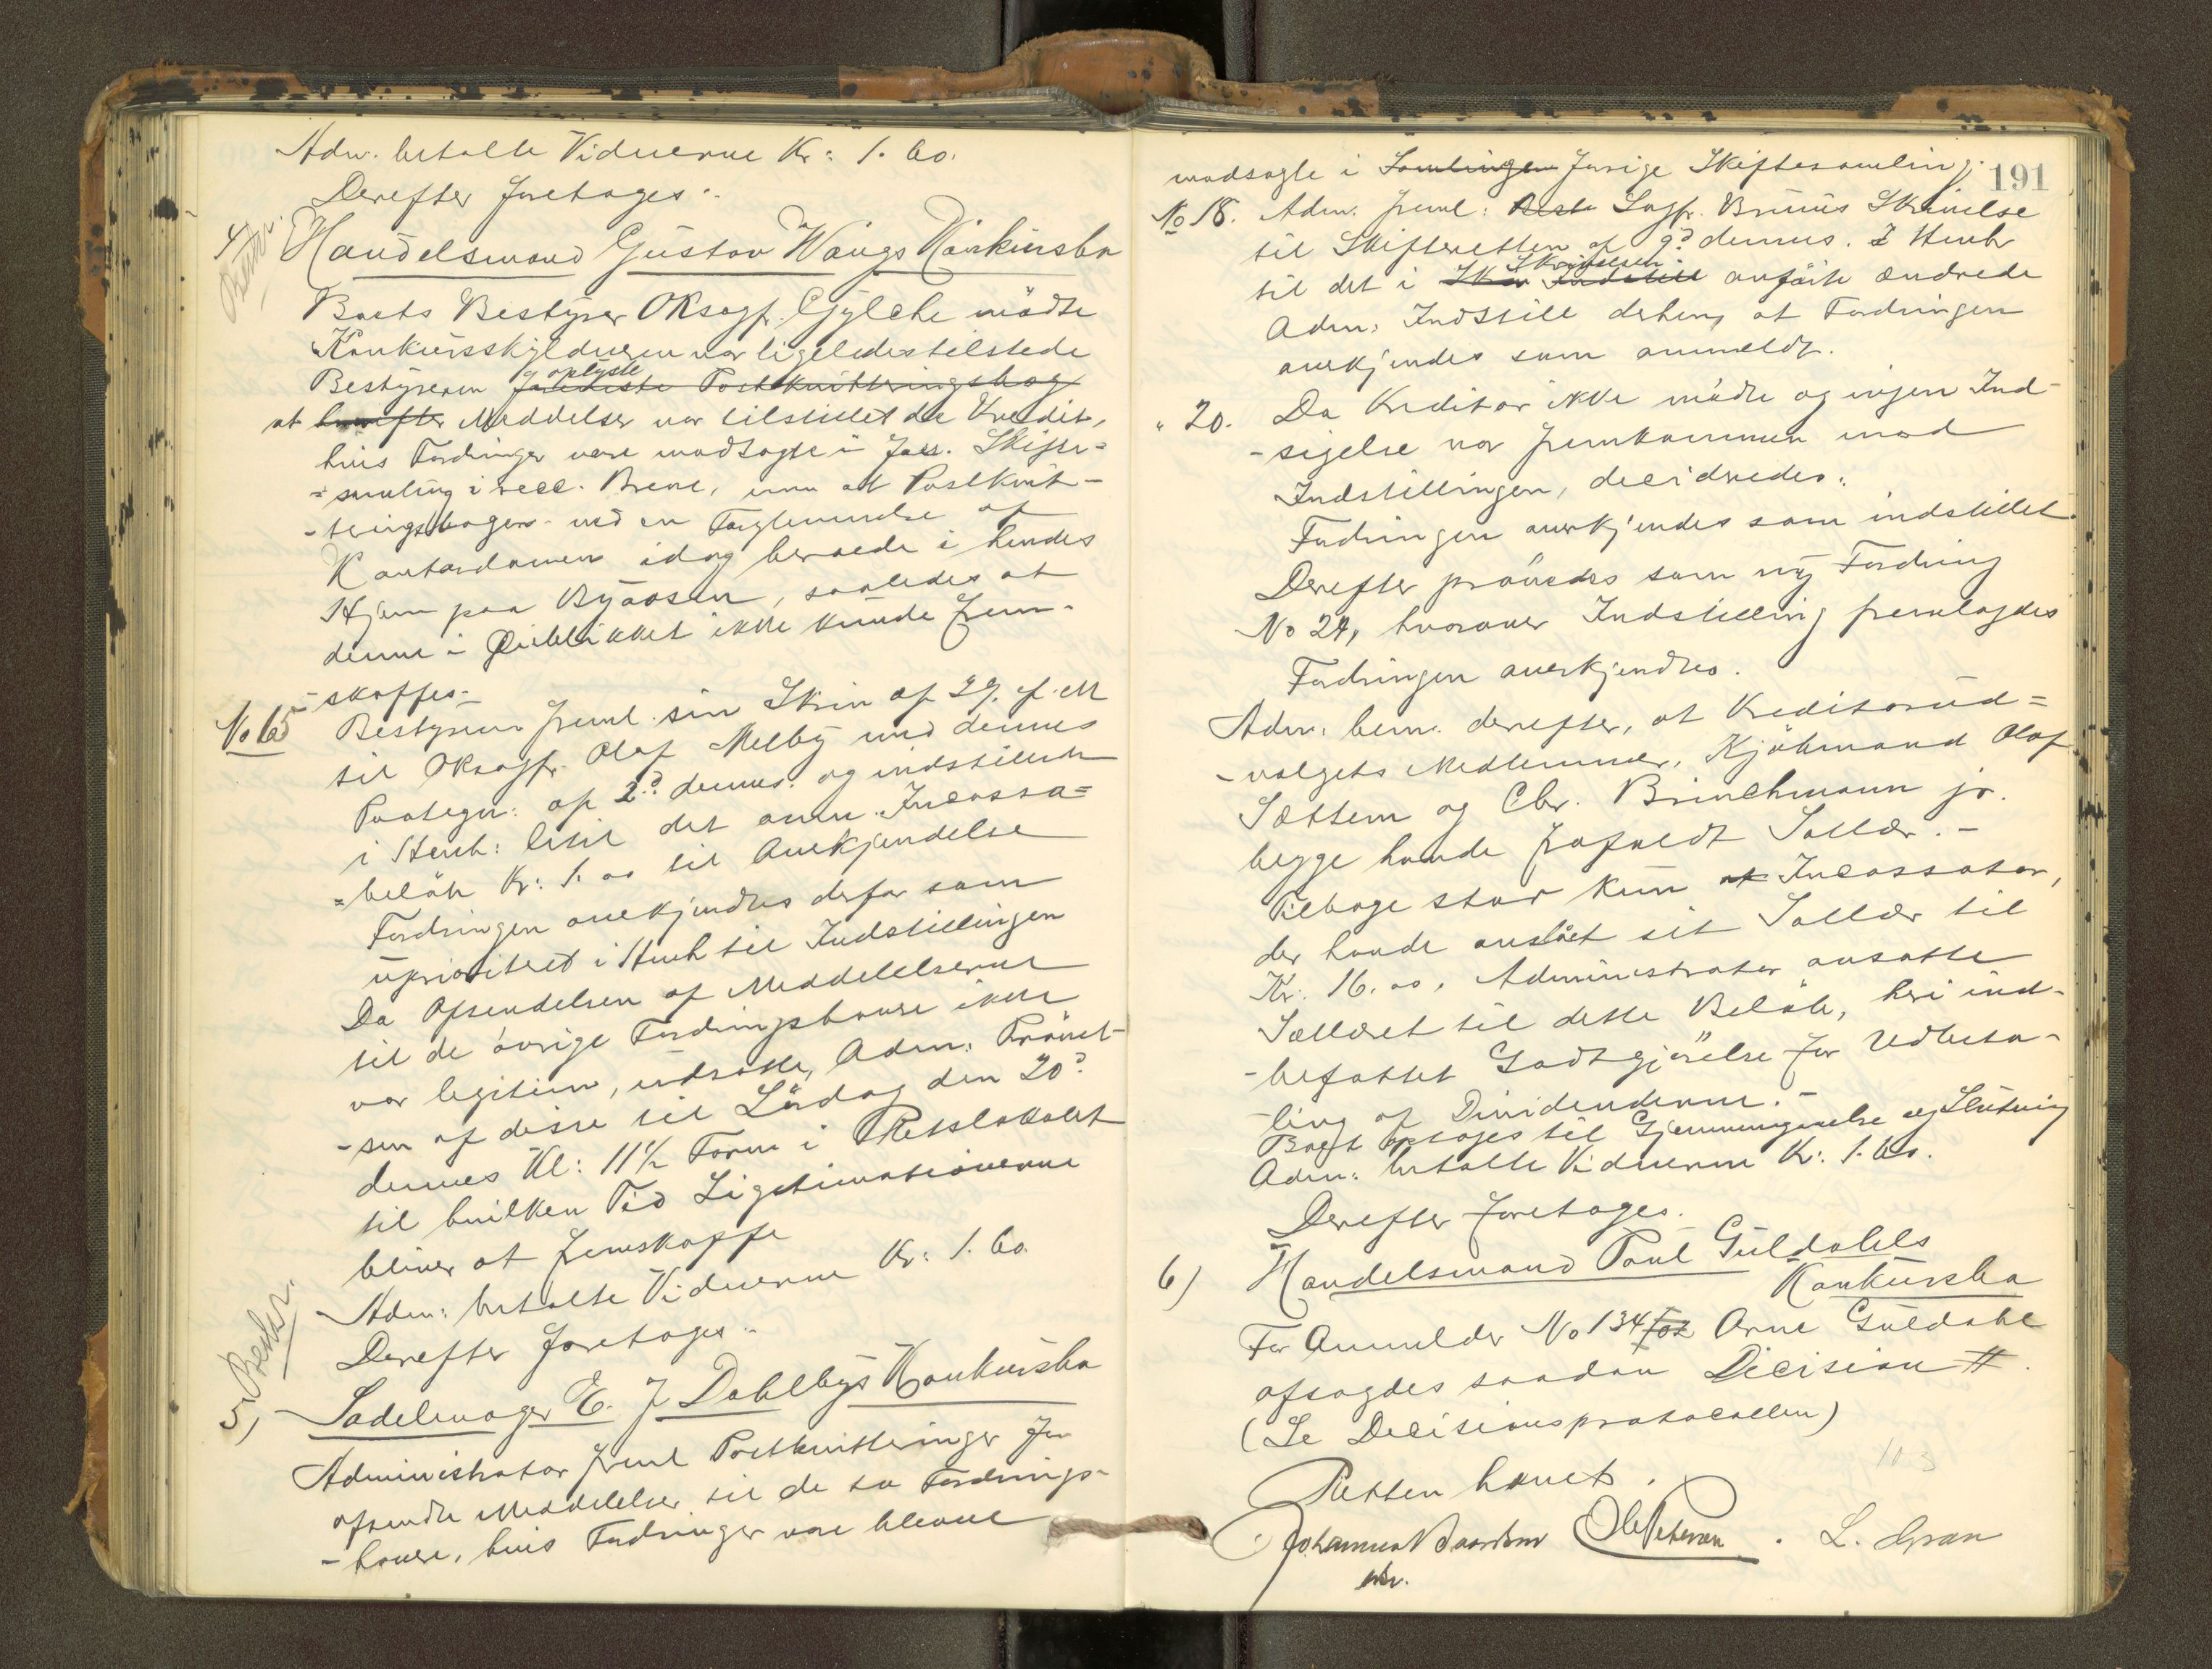 Adm. betalte Vidnerne Kr: 1.60.
Derefter foretages:
4/ Beskr.
Handelsmand Gustav Wangs Konkursbo
Boets Bestyrer ORsagf. Gylche mødte
Konkursskyldneren var ligeledes tilstede
Bestyreren oplyste fremlagte Postkvitteringsbog
at hvorefter Meddelelser var tilstillet de Kredit.
hvis Fordringer vare modsagte i Skifte=
=samling i recc. Breve, men at Postkvit-
-teringsbogen ved en Forglemmelse af
Kontordamen idag beroede i hendes
Hjem paa Byaasen, saaledes at
denne i Øieblikket ikke kunde frem-
-skaffes.-
No 65 Bestyreren freml. sin Skriv. af 29. f. M
til ORsagf. Olaf Melby med dennes
Paategn: af 2d dennes og indstillede
i Henh: hertil det anm. Incassa=
=beløb Kr: 1.00 til Anerkjendelse
Fordringen anerkjendtes derfor som
uprioritert i Henh til Indstillingen
Da Afsendelsen af Meddelelserne
til de øvrige Fordringshavere ikke
var legitim., udsatte Adm. Prøvel-
-sen af disse til Lørdag den 20d
dennes Kl: 11 1/2 Form i Retslokalet
til hvilken Tid Legitimationerne
bliver at fremskaffe
Adm: betalte Vidnerne Kr: 1.60.
Derefter foretages:
5/ Beskr.
Sadelmager E. J Dahlbys Konkursbo
Administrator freml Postkvitteringer for
afsendte Meddelelser til de to Fordrings-
-havere, hvis Fordringer vare blevne
191
modsagte i Samlingen forrige Skiftesamling.
No 18. Adm. freml: Sagf. Bruuns Skrivelse
til Skifteretten af 9d dennes. I Henh
til det i Skrivelsen Indstill anførte ændrede
Adm. Indstill derhen, at Fordringen
anerkjendes som anmeldt.
" 20. Da Kreditor ikke mødte og ingen Ind-
-sigelse var fremkommen mod
Indstillingen, decideredes:
Fordringen anerkjendes som indstillet
Derefter prøvedes som ny Fordring
No 24, hvorover Indstilling fremlagdes
Fordringen anerkjendtes.
Adm. bem. derefter, at Kreditorud=
-valgets Medlemmer, Kjøbmand Olaf
Sættem og Chr. Brinchmann jr.
begge havde frafaldt Sallær.-
Tilbage staar kun Incassator,
der havde anslået sit Sallær til
Kr. 16.00, Administrator ansatte
Sallæret til dette Beløb, heri ind-
-befattet Godtgjørelse for Udbeta-
-ling af Dividenderne.-
Boet optages til Gjennemgaaelse og Slutning
Adm: betalte Vidnerne Kr: 1.60.
Derefter foretages.
6) Handelsmand Paul Guldahls
Konkursbo
For Anmelder No 134 for Arne Guldahl
afsagdes saadan Decision #.
(Se Decisionsprotocollen)
Retten hævet.
Ole Petersen . L. Gran